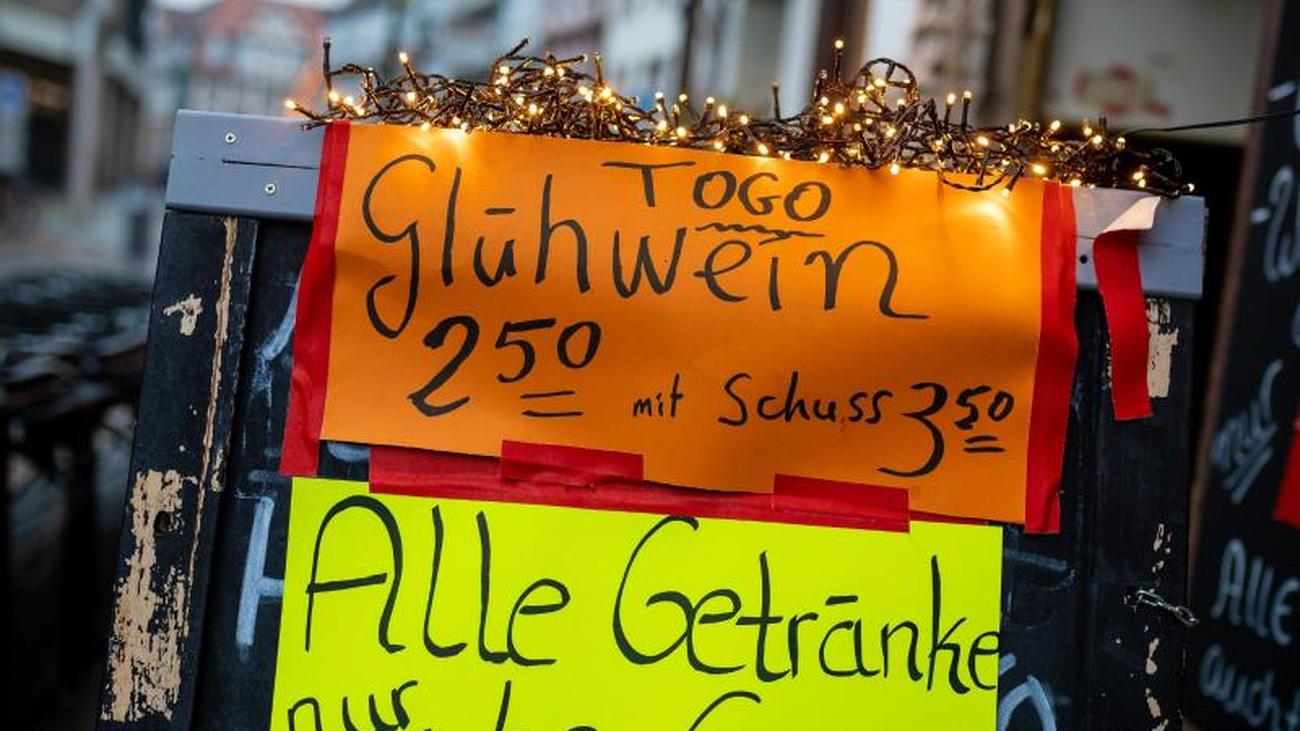 TOGO
Glühwein
2 50 mit Schuss 3 50
Alle Getränke
nur
Alle
auch